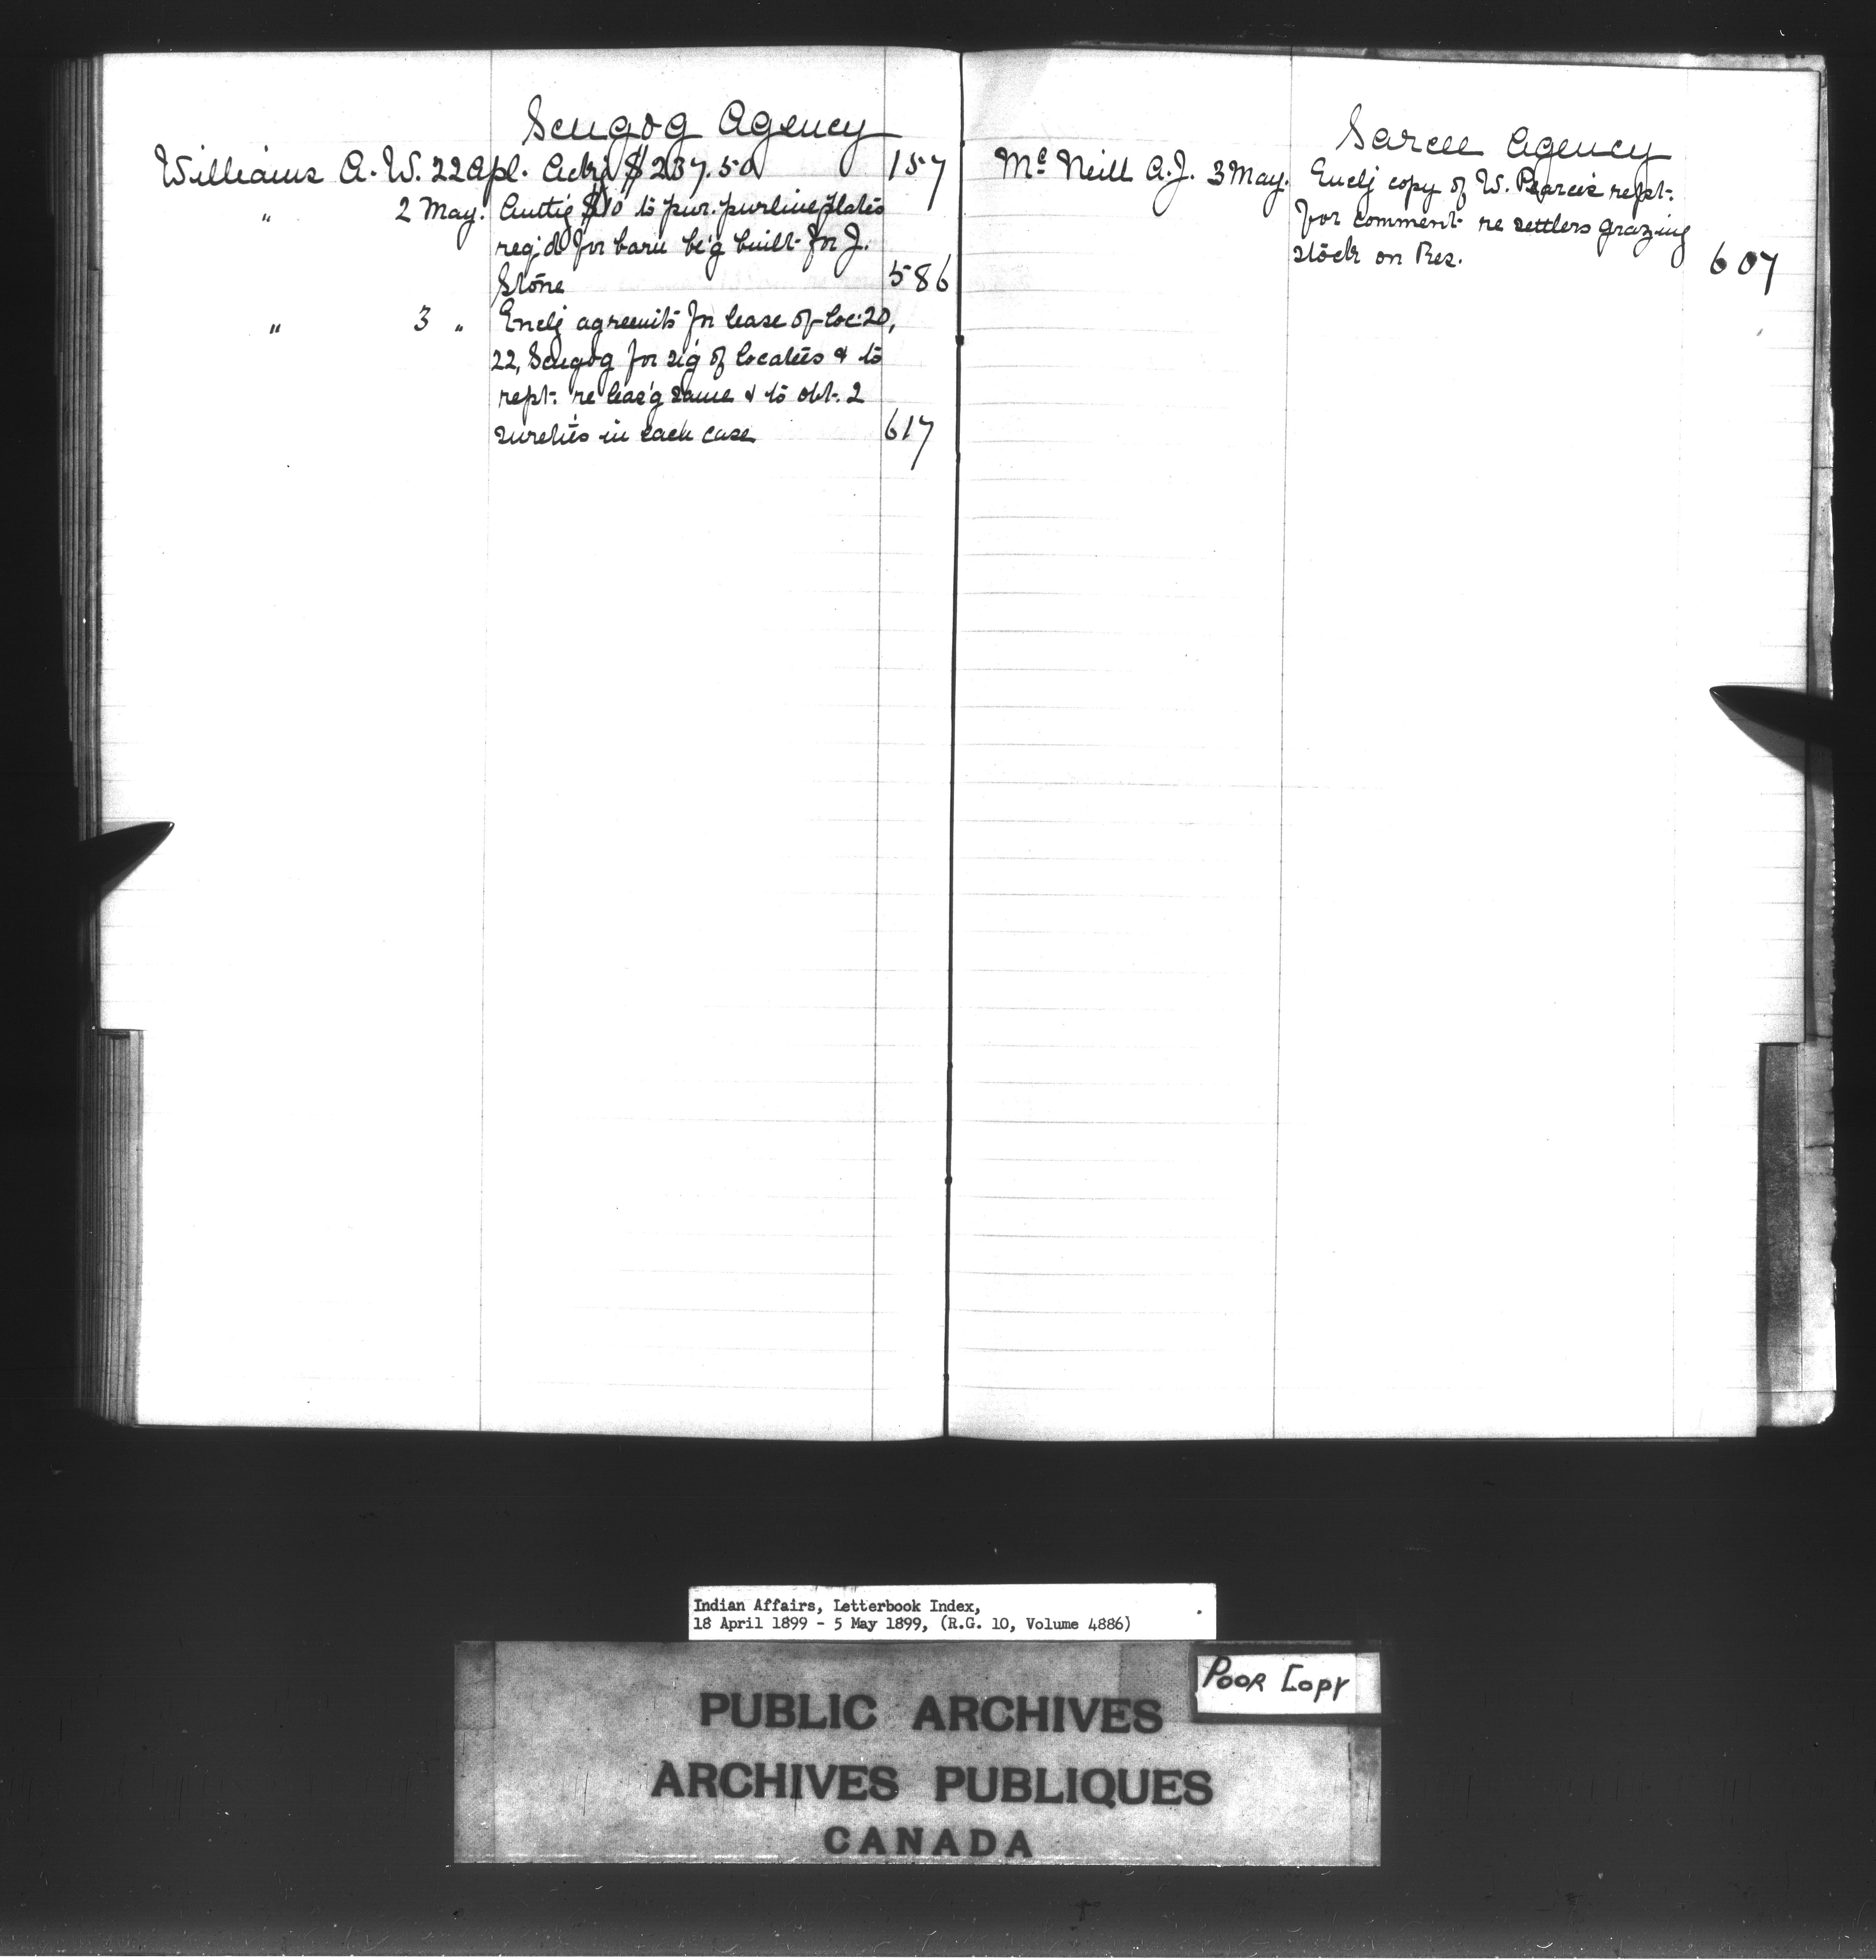 Scugog Agency
Williams A. W. 22 Apl. Ackg $237.50 157
" 2 May. Authg $10 to pur. purline plates
req'd for barn be'g built for J.
Stone 586
" 3 " Enclg agreemts for lease of loc. 20,
22, Scugog for sig of locatees & to
rept. re leas'g same & to obt. 2
sureties in each case 617
Sarcee Agency
Mc Neill A. J. 3 May. Enclg copy of W. Pearce's rept.
for comment re settlers grazing
stock on Res. 607
Indian Affairs, Letterbook Index,
18 April 1899 - 5 May 1899, (R.G. 10, Volume 4886)
Poor Copy
PUBLIC ARCHIVES
ARCHIVES PUBLIQUES
CANADA